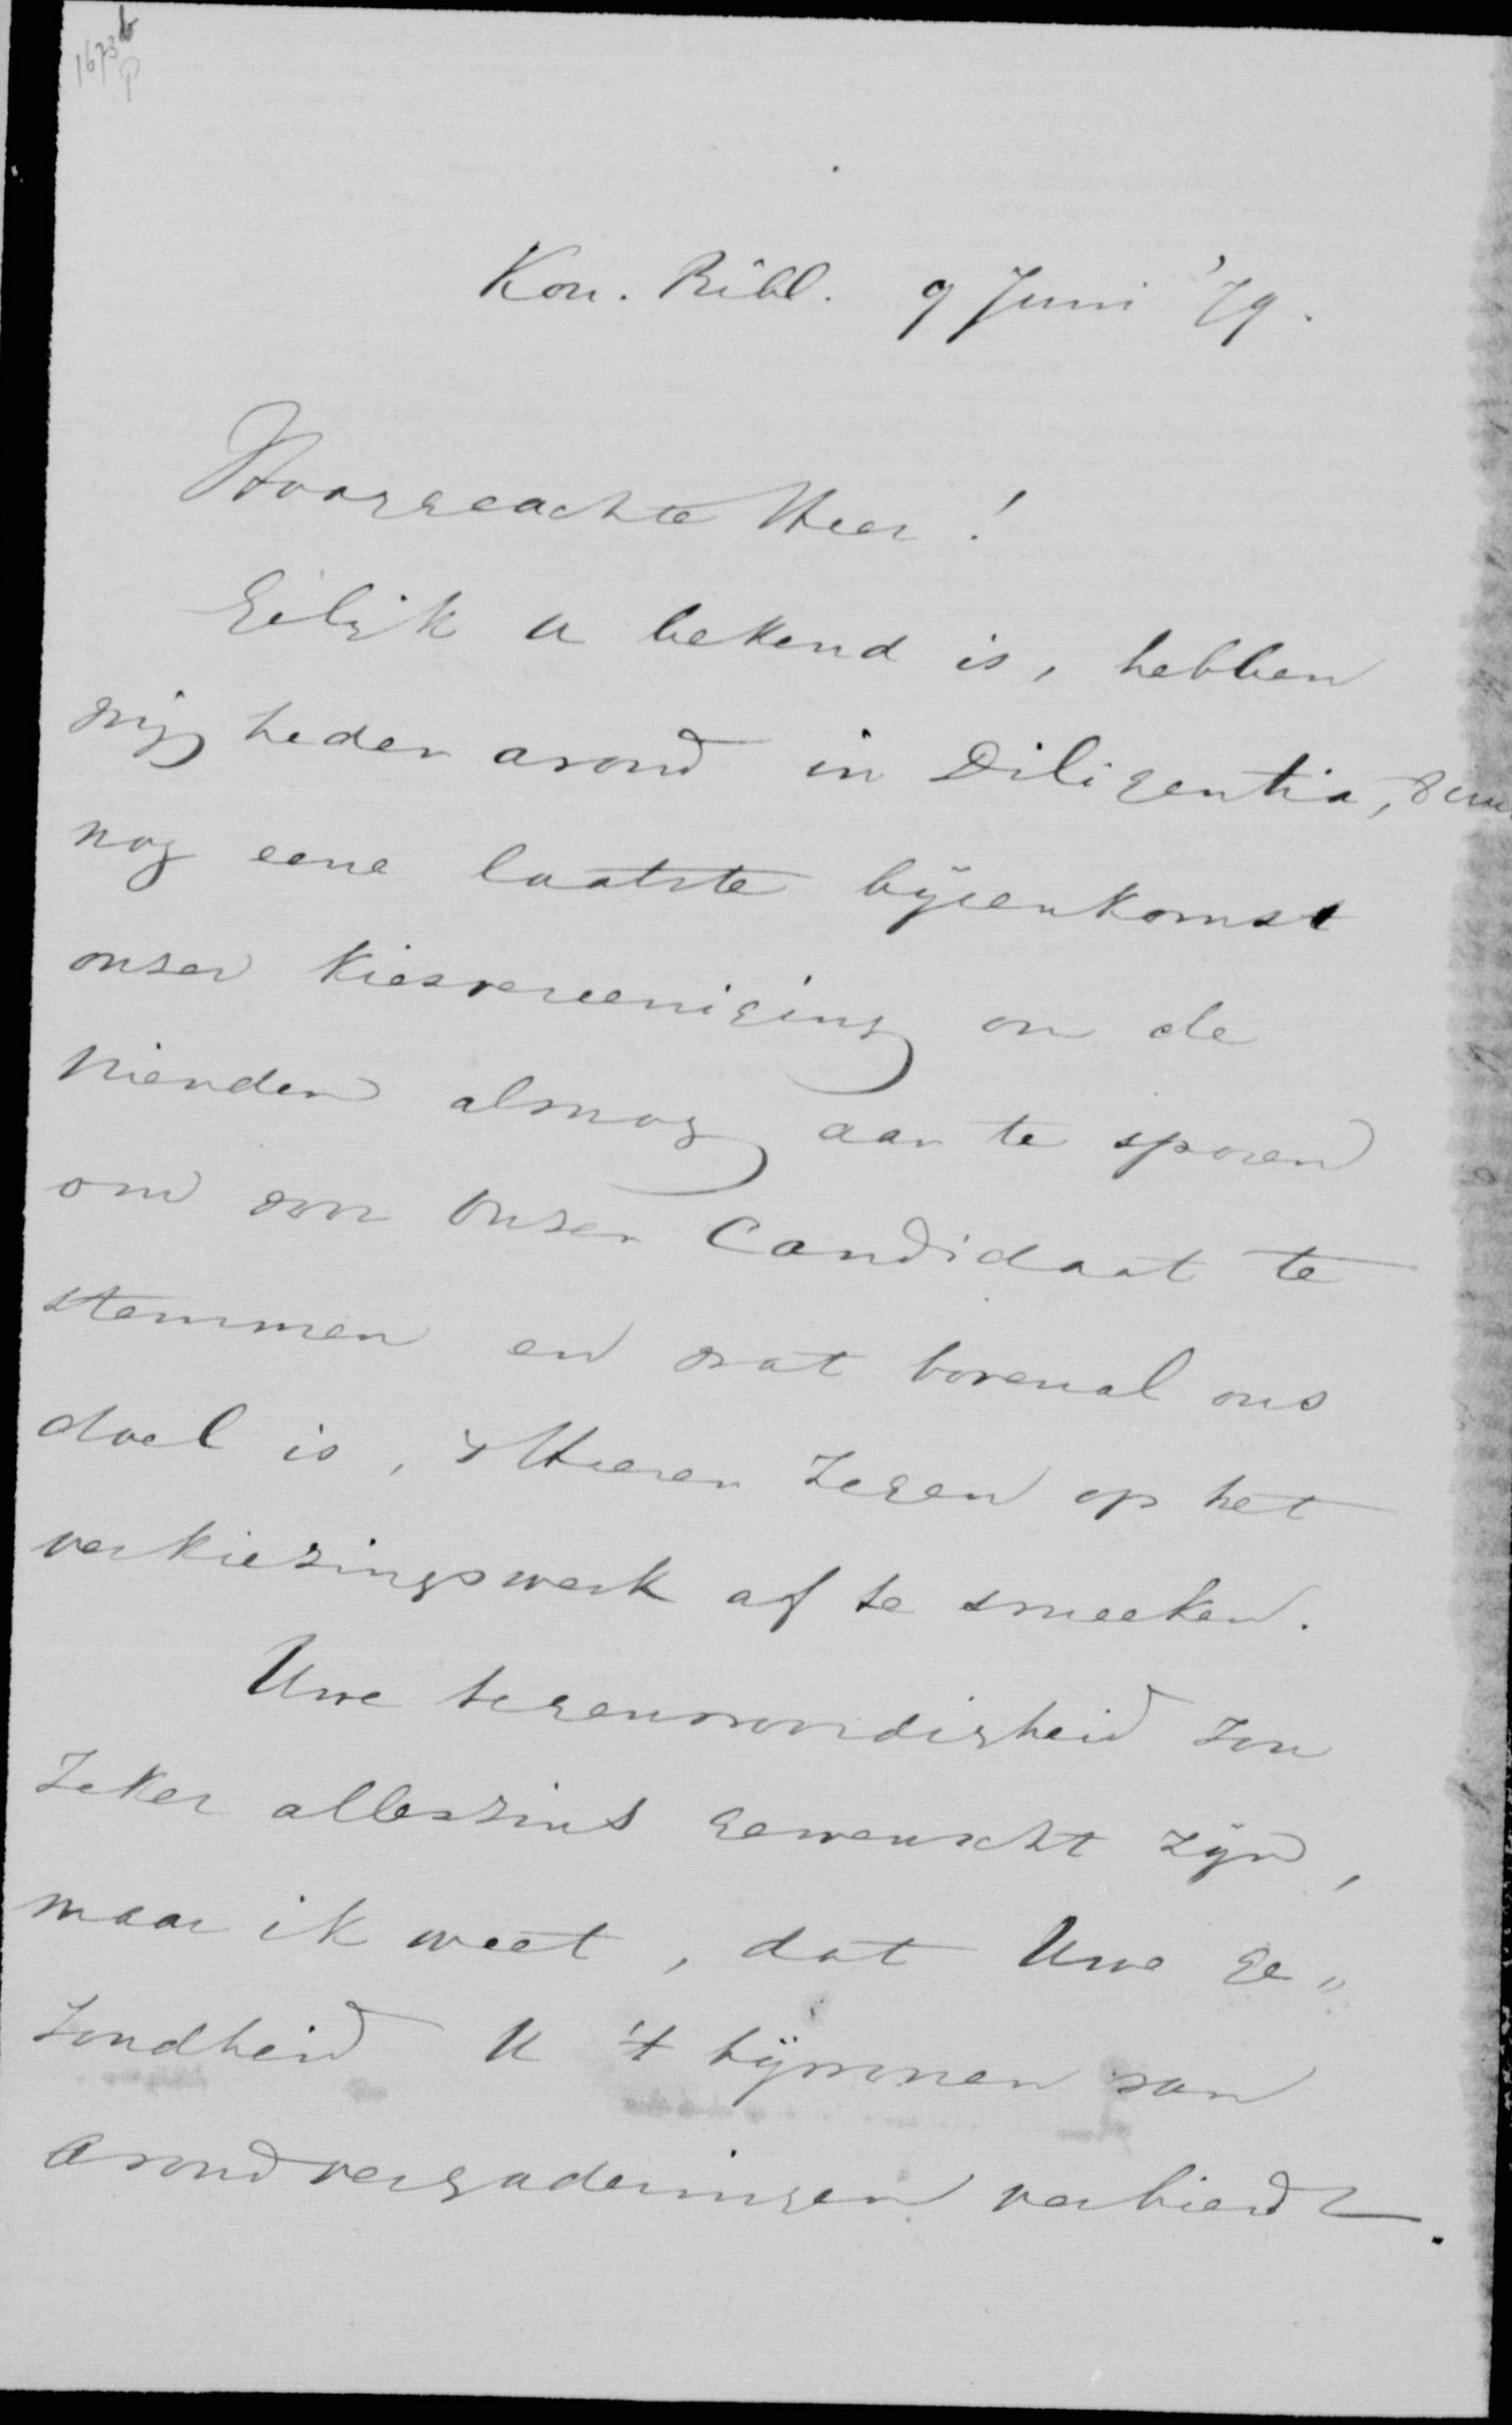 1673b
P
Kon. Bibl. 9 Juni '79.
Hooggeachte Heer!
Gelijk U bekend is, hebben
wij heden avond in Diligentia, 8 uur
nog eene laatste bijeenkomst
onzer Kiesvereeniging om de
vrienden alsnog aan te sporen
om voor onzen Candidaat te
stemmen en wat bovenal ons
doel is, 's Heeren zegen op het
verkiezingswerk af te smeeken.
Uwe tegenwoordigheid zou
zeker alleszins gewenscht zijn,
maar ik weet, dat Uwe ge„
zondheid U 't bijwonen van
avondvergaderingen verbiedt.